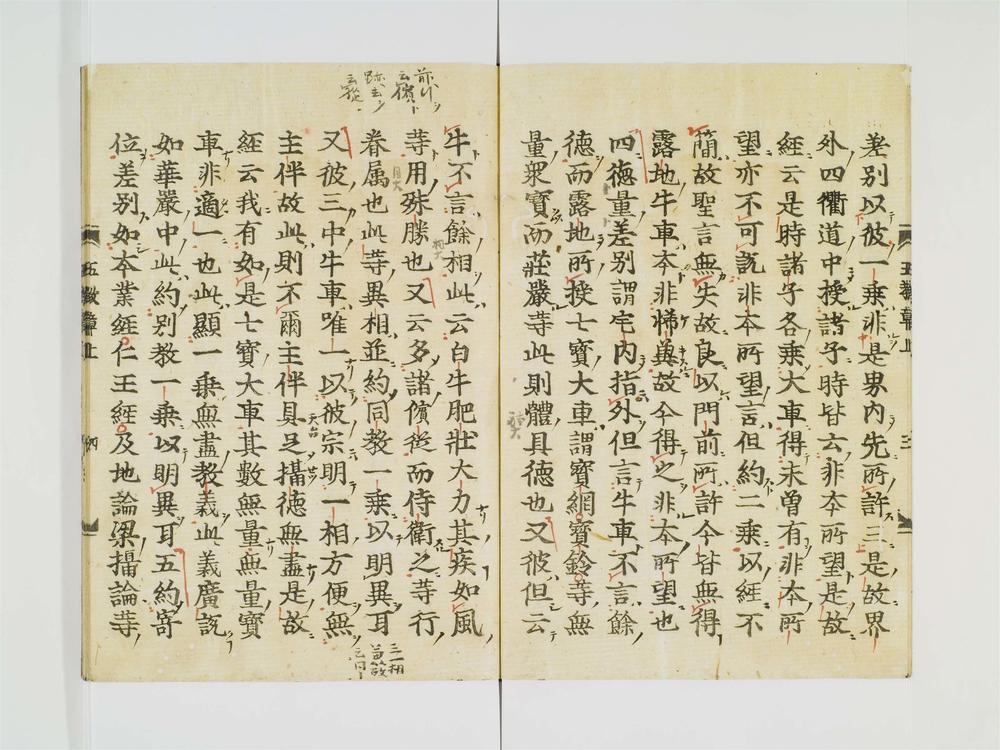 差別以彼一乗非是界内先所許三是故界
外四衢道中授諸子時皆云非本所望是故
経云是時諸子各乗大車得未曾有非本所
望亦不可説非本所望言但約二乗以経不
簡故聖言無失故良以門前所許今皆無得
露地牛車本非悕冀故今得之非本所望也
四徳量差別謂宅内指外但言牛車不言餘
徳而露地所授七寶大車謂寶網寶鈴等無
量衆寶而荘嚴等此則體具徳也又彼但云
五教章上
三
牛不言餘相此云白牛肥壯大力其疾如風
等用殊勝也又云多諸儐從而侍衛之等行
眷属也此等異相並約同教一乗以明異耳
又彼三中牛車唯一以彼宗明一相方便無
天台
主伴故此則不爾主伴具足攝徳無盡是故
経云我有如是七寶大車其數無量無量寶
車非適一也此顯一乗無盡教義此義廣説
如華嚴中此約别教一乗以明異耳五約寄
位差別如本業経仁王経及地論梁攝論等
五教章上
四